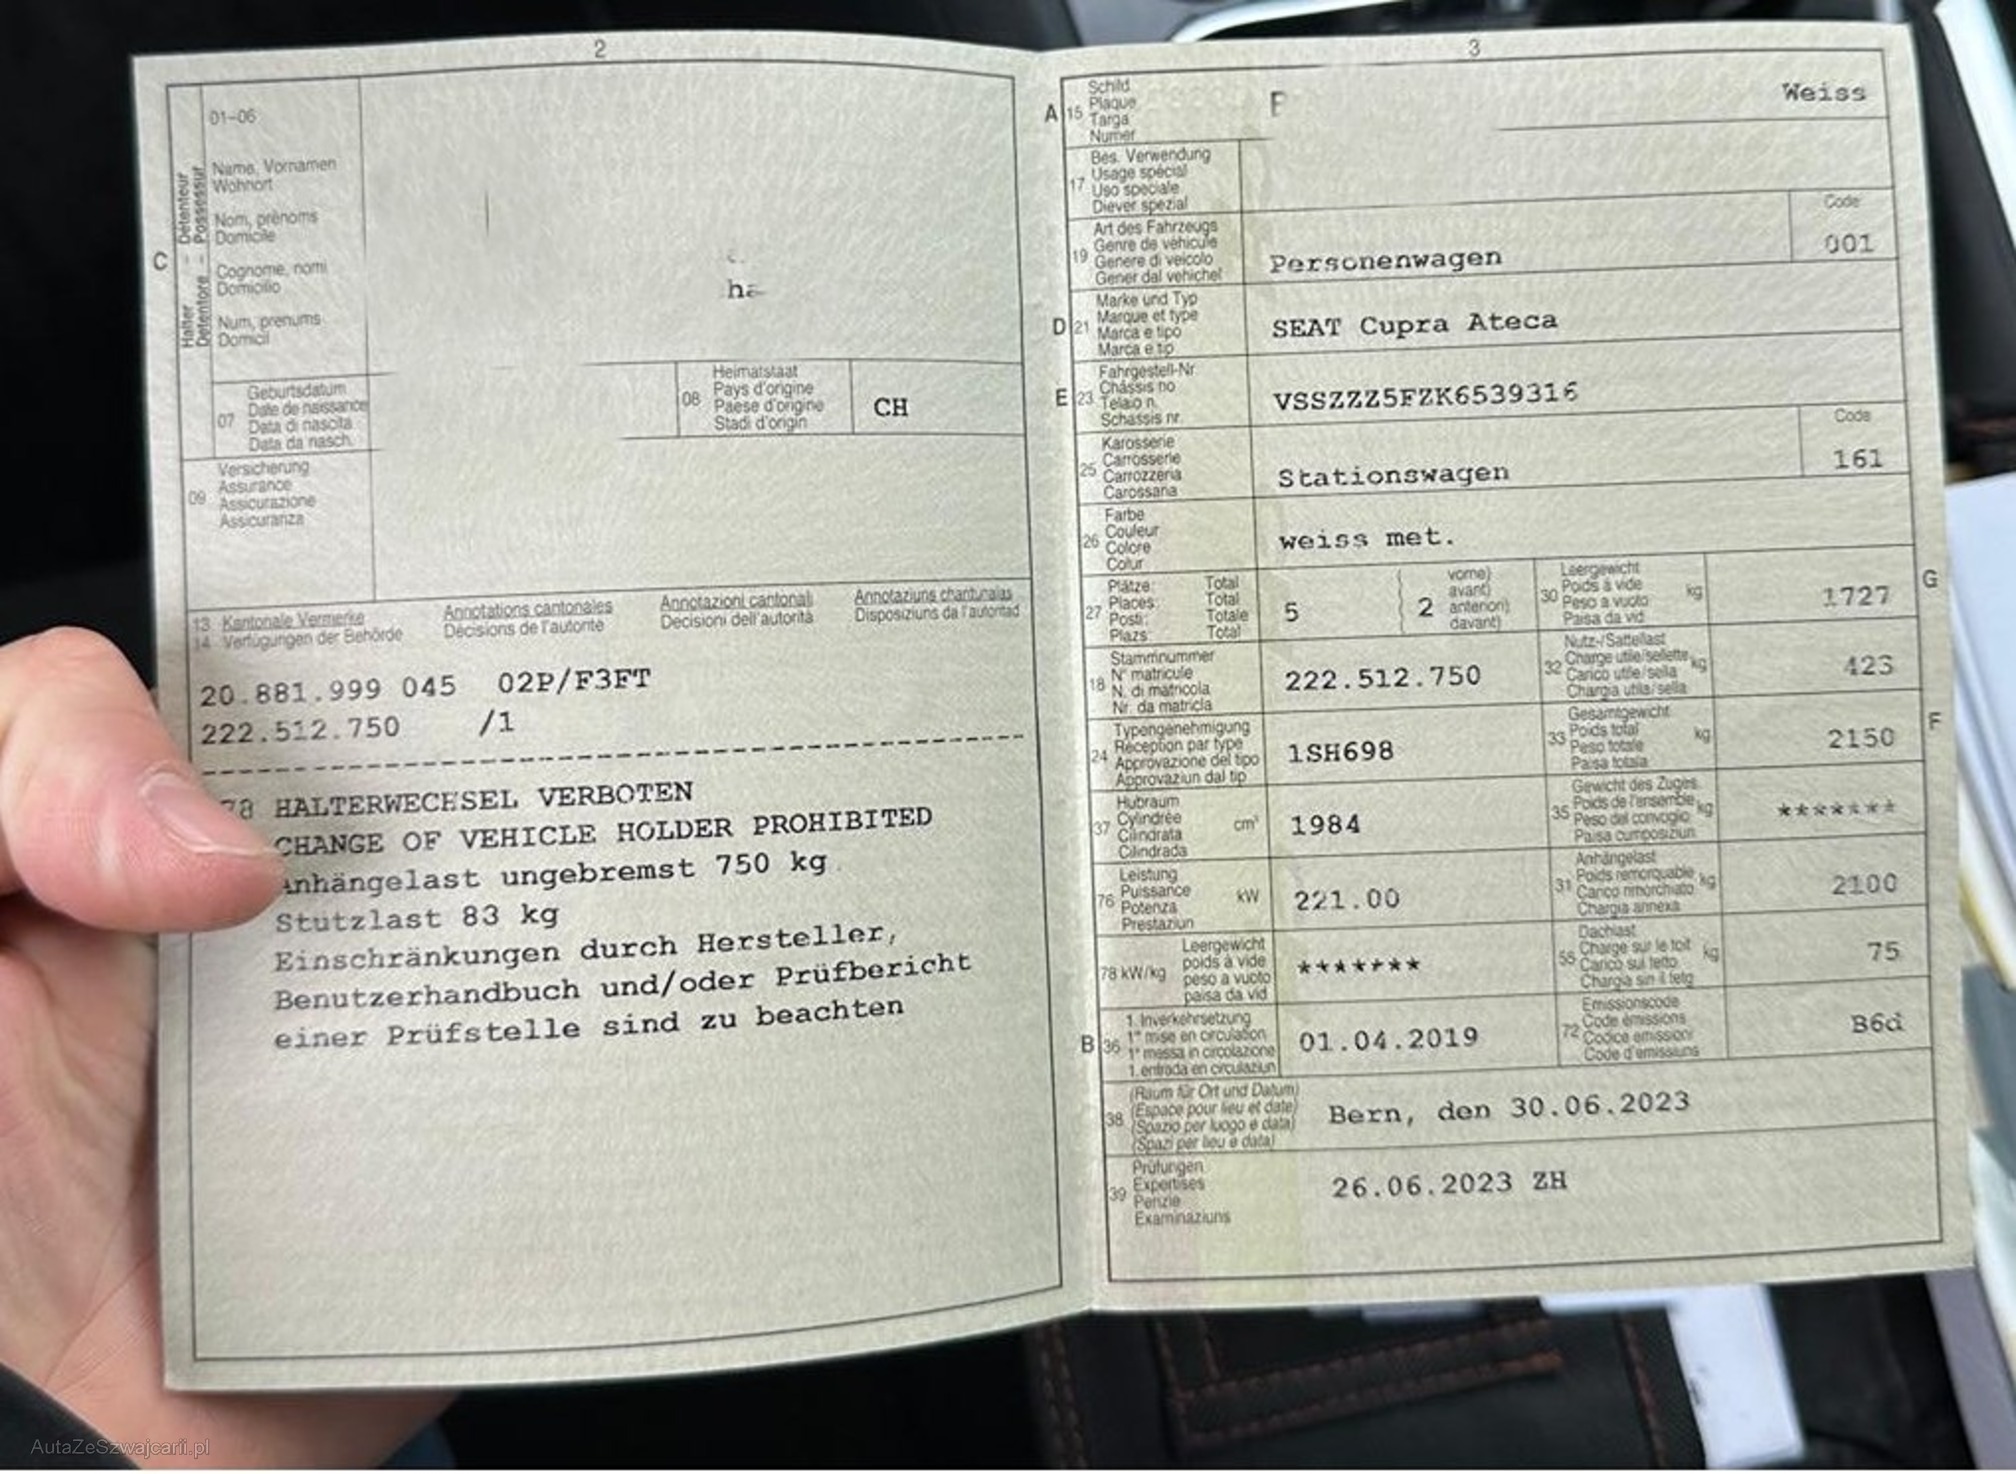 2
01-06
Halter - Détenteur
Detentore - Possessur
C
Name, Vornamen
Wohnort
Nom, prénoms
Domicile
Cognome, nomi
Domicilio
Num, prenums
Domicil
07
Geburtsdatum
Date de naissance
Data di nascita
Data da nasch.
08
Heimatstaat
Pays d'origine
Paese d'origine
Stadi d'origin
CH
09
Versicherung
Assurance
Assicurazione
Assicuranza
13 Kantonale Vermerke Annotations cantonales Annotazioni cantonali Annotaziuns chantunalas
14 Verfügungen der Behörde Décisions de l'autorité Decisioni dell'autorità Disposiziuns da l'autoritad
20.881.999 045 02P/F3FT
222.512.750 /1
HALTERWECHSEL VERBOTEN
CHANGE OF VEHICLE HOLDER PROHIBITED
Anhängelast ungebremst 750 kg
Stützlast 83 kg
Einschränkungen durch Hersteller,
Benutzerhandbuch und/oder Prüfbericht
einer Prüfstelle sind zu beachten
3
A 15
Schild
Plaque
Targa
Numer
Weiss
17
Bes. Verwendung
Usage spécial
Uso speciale
Diever spezial
19
Art des Fahrzeugs
Genre de véhicule
Genere di veicolo
Gener dal vehichel
Personenwagen
Code
001
D 21
Marke und Typ
Marque et type
Marca e tipo
Marca e tip
SEAT Cupra Ateca
E 23
Fahrgestell-Nr
Châssis no
Telaio n.
Schassis nr.
VSSZZZ5FZK6539316
25
Karosserie
Carrosserie
Carrozzeria
Carossaria
Stationswagen
Code
161
26
Farbe
Couleur
Colore
Colur
weiss met.
27
Plätze: Total
Places: Total
Posti: Totale
Plazs: Total
5
2
vorne)
avant)
anteriori)
davant)
30
Leergewicht
Poids à vide
Peso a vuoto
Paisa da vid
kg
1727
G
18
Stammnummer
N° matricule
N. di matricola
Nr. da matricla
222.512.750
32
Nutz-/Sattellast
Charge utile/sellette
Carico utile/sella
Chargia utila/sella
kg
423
24
Typengenehmigung
Réception par type
Approvazione del tipo
Approvaziun dal tip
1SH698
33
Gesamtgewicht
Poids total
Peso totale
Paisa totala
kg
2150
F
37
Hubraum
Cylindrée
Cilindrata
Cilindrada
cm³
1984
35
Gewicht des Zuges
Poids de l'ensemble
Peso del convoglio
Paisa cumposiziun
kg
*******
76
Leistung
Puissance
Potenza
Prestaziun
kW
221.00
31
Anhängelast
Poids remorquable
Carico rimorchiato
Chargia annexa
kg
2100
78 kW/kg
Leergewicht
poids à vide
peso a vuoto
paisa da vid
*******
55
Dachlast
Charge sur le toit
Carico sul tetto
Chargia sin il tetg
kg
75
B 36
1. Inverkehrsetzung
1re mise en circulation
1a messa in circolazione
1. entrada en circulaziun
01.04.2019
72
Emissionscode
Code émissions
Codice emissioni
Code d'emissiuns
B6d
38
(Raum für Ort und Datum)
(Espace pour lieu et date)
(Spazio per luogo e data)
(Spazi per lieu e data)
Bern, den 30.06.2023
39
Prüfungen
Expertises
Perizie
Examinaziuns
26.06.2023 ZH
AutaZeSzwajcarii.pl